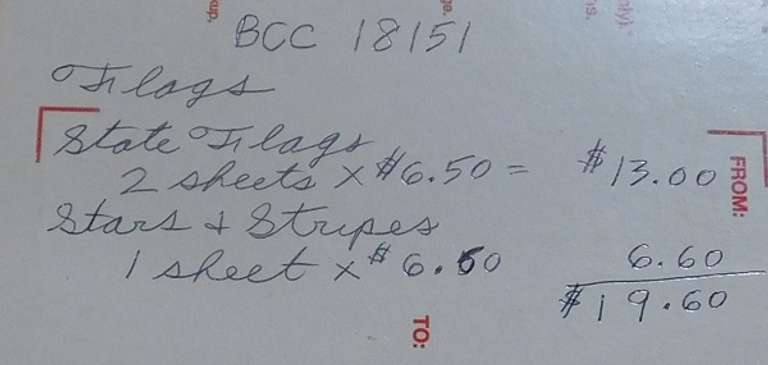 up.
ge.
ns.
nly).
BCC 18151
Flags
State Flags
2 sheets x $6.50 = $13.00
FROM:
Stars & Stripes
1 sheet x $6.60 6.60
$19.60
TO: